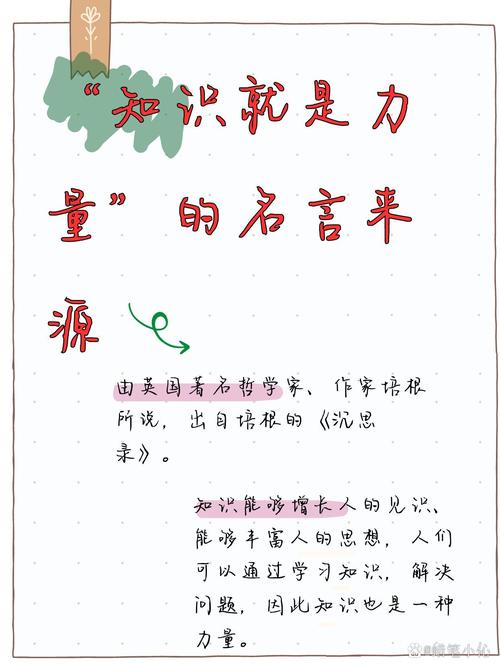 “知识就是力
量”的名言来
源
由英国著名哲学家、作家培根
所说，出自培根的《沉思
录》。
知识能够增长人的见识、
能够丰富人的思想，人们
可以通过学习知识，解决
问题，因此知识也是一种
力量。